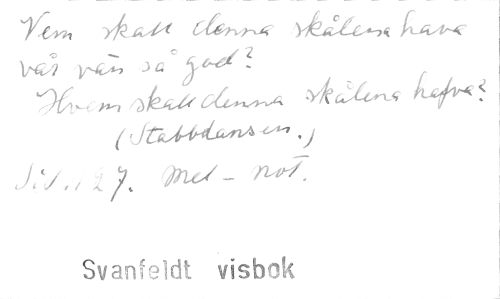 Vem skall denna skålena hava
vår vän så god?
Hvem skall denna skålena hafva?
(Stabbdansen.)
Sid. 127. Mel-not.
Svanfeldt visbok